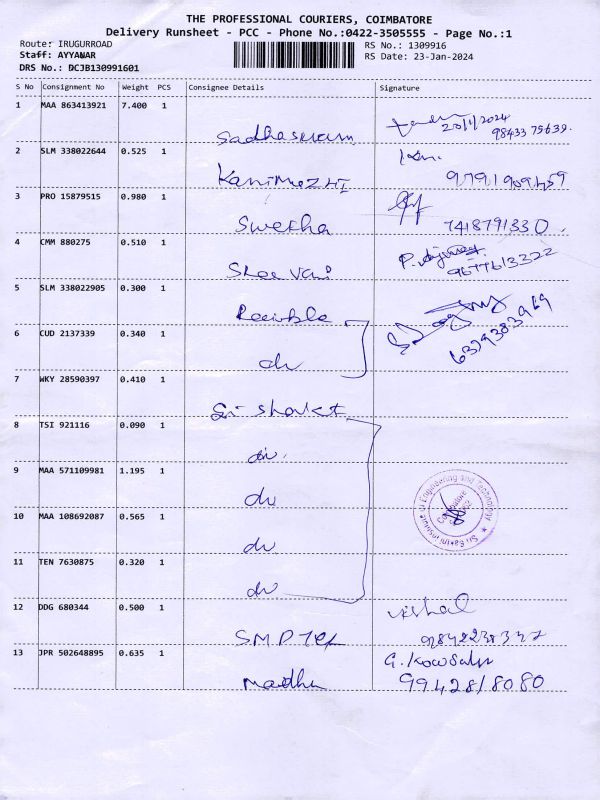 THE PROFESSIONAL COURIERS, COIMBATORE
Delivery Runsheet - PCC - Phone No.:0422-3505555 - Page No.:1
Route: IRUGURROAD RS No.: 1309916
Staff: AYYANAR RS Date: 23-Jan-2024
DRS No.: DCJB130991601
S No Consignment No Weight PCS Consignee Details Signature
1 MAA 863413921 7.400 1
23/1/2024
98433 75639.
Sadhasivam
2 SLM 338022644 0.525 1
Kanimozhi 9791909459
3 PRO 15879515 0.980 1
Swetha 7418791330.
4 CMM 880275 0.510 1
Shee vani 9677613322
5 SLM 338022905 0.300 1
6379383969
6 CUD 2137339 0.340 1
do
7 WKY 28590397 0.410 1
Sri Shakti
8 TSI 921116 0.090 1
do
9 MAA 571109981 1.195 1
do
Sri Sakthi Institute of Engineering and Technology
Coimbatore
10 MAA 108692087 0.565 1
do
11 TEN 7630875 0.320 1
do
12 DDG 680344 0.500 1
Vishal
SMP Tex 9842238347
13 JPR 502648895 0.635 1
G. Kowsalya
Madhu 9942818080